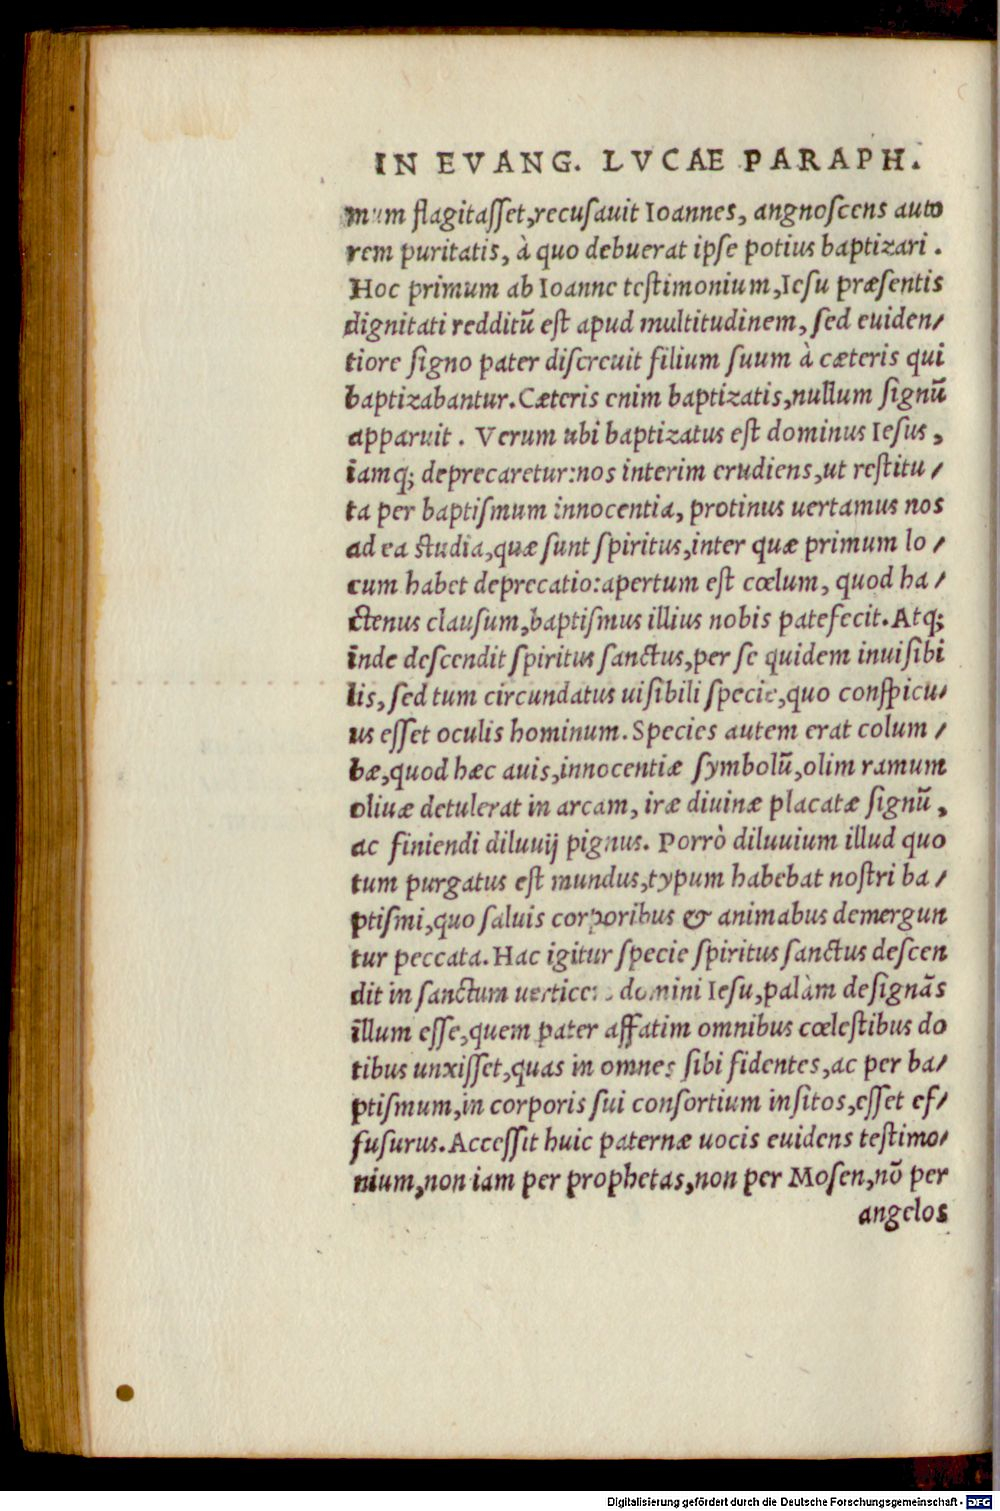 IN EVANG. LVCAE PARAPH.
mum flagitasset,recusauit Ioannes, angnoscens auto
rem puritatis, à quo debuerat ipse potius baptizari .
Hoc primum ab Ioanne testimonium,Iesu præsentis
dignitati redditũ est apud multitudinem, sed euiden/
tiore signo pater discreuit filium suum à cæteris qui
baptizabantur.Cæteris enim baptizatis,nullum signũ
apparuit . Verum ubi baptizatus est dominus Iesus ,
iamq; deprecaretur:nos interim erudiens,ut restitu /
ta per baptismum innocentia, protinus uertamus nos
ad ea studia,quæ sunt spiritus,inter quæ primum lo /
cum habet deprecatio:apertum est cœlum, quod ha /
ctenus clausum,baptismus illius nobis patefecit.Atq;
inde descendit spiritus sanctus,per se quidem inuisibi
lis, sed tum circundatus uisibili specie,quo conspicu/
us esset oculis hominum. Species autem erat colum /
bæ,quod hæc auis,innocentiæ symbolũ,olim ramum
oliuæ detulerat in arcam, iræ diuinæ placatæ signũ ,
ac finiendi diluuij pignus. Porrò diluuium illud quo
tum purgatus est mundus,typum habebat nostri ba /
ptismi,quo saluis corporibus & animabus demergun
tur peccata. Hac igitur specie spiritus sanctus descen
dit in sanctum uerticem domini Iesu,palàm designãs
illum esse,quem pater affatim omnibus cœlestibus do
tibus unxisset,quas in omnes sibi fidentes,ac per ba/
ptismum,in corporis sui consortium insitos,esset ef/
fusurus.Accessit huic paternæ uocis euidens testimo/
nium,non iam per prophetas,non per Mosen,nõ per
angelos
Digitalisierung gefördert durch die Deutsche Forschungsgemeinschaft - DFG